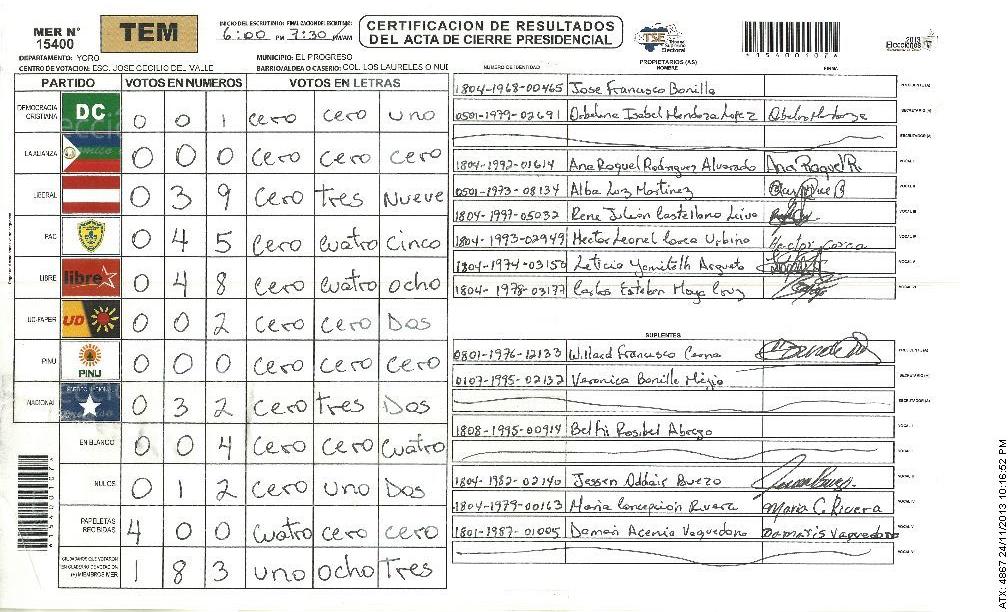 MER N° 15400
TEM
INICIO DEL ESCRUTINIO: 6:00 PM
FINALIZACION DEL ESCRUTINIO: 7:30 PM/AM
CERTIFICACION DE RESULTADOS
DEL ACTA DE CIERRE PRESIDENCIAL
TSE
2013
Elecciones
DEPARTAMENTO: YORO
MUNICIPIO: EL PROGRESO
CENTRO DE VOTACION: ESC. JOSE CECILIO DEL VALLE
BARRIO/ALDEA O CASERIO: COL. LOS LAURELES O NUE
PARTIDO VOTOS EN NUMEROS VOTOS EN LETRAS
DEMOCRACIA CRISTIANA DC 0 0 1 cero cero uno
LA ALIANZA 0 0 0 cero cero cero
LIBERAL 0 3 9 cero Tres Nueve
PAC 0 4 5 cero cuatro cinco
LIBRE libre 0 4 8 cero cuatro ocho
UD-FAPER UD 0 0 2 cero cero Dos
PINU PINU 0 0 0 cero cero cero
NACIONAL 0 3 2 cero Tres Dos
EN BLANCO 0 0 4 cero cero cuatro
NULOS 0 1 2 cero uno Dos
PAPELETAS RECIBIDAS 4 0 0 cuatro cero cero
1 8 3 uno ocho Tres
NUMERO DE IDENTIDAD PROPIETARIOS (AS) NOMBRE FIRMA
1804-1968-00465 Jose Francisco Bonilla PRESIDENTE (A)
0501-1979-02691 Isabel Mendoza Lopez SECRETARIO (A)
ESCRUTADOR (A)
1804-1992-01614 Ana Raquel Rodriguez Alvarado Ana Raquel R. VOCAL I
0501-1973-08134 Alba Luz Martinez VOCAL II
1804-1997-05032 Rene Julian Castellano VOCAL III
1804-1993-02949 Hector Leonel Lorca Urbina Hector Lorca VOCAL IV
1804-1974-03150 Leticia VOCAL V
1804-1978-03177 Carlos Esteban Moya Cruz VOCAL VI
SUPLENTES
0801-1976-12133 Willard Francisco PRESIDENTE (A)
0107-1995-02132 Veronica Bonilla Mejia SECRETARIO (A)
ESCRUTADOR (A)
1808-1995-00914 Rosibel VOCAL I
VOCAL II
1804-1982-02140 VOCAL III
1804-1979-00163 Maria Concepcion Rivera Maria C. Rivera VOCAL IV
1801-1987-01005 Vaquedano Damaris Vaquedano VOCAL V
VOCAL VI
ATX: 4867 24/11/2013 10:16:52 PM